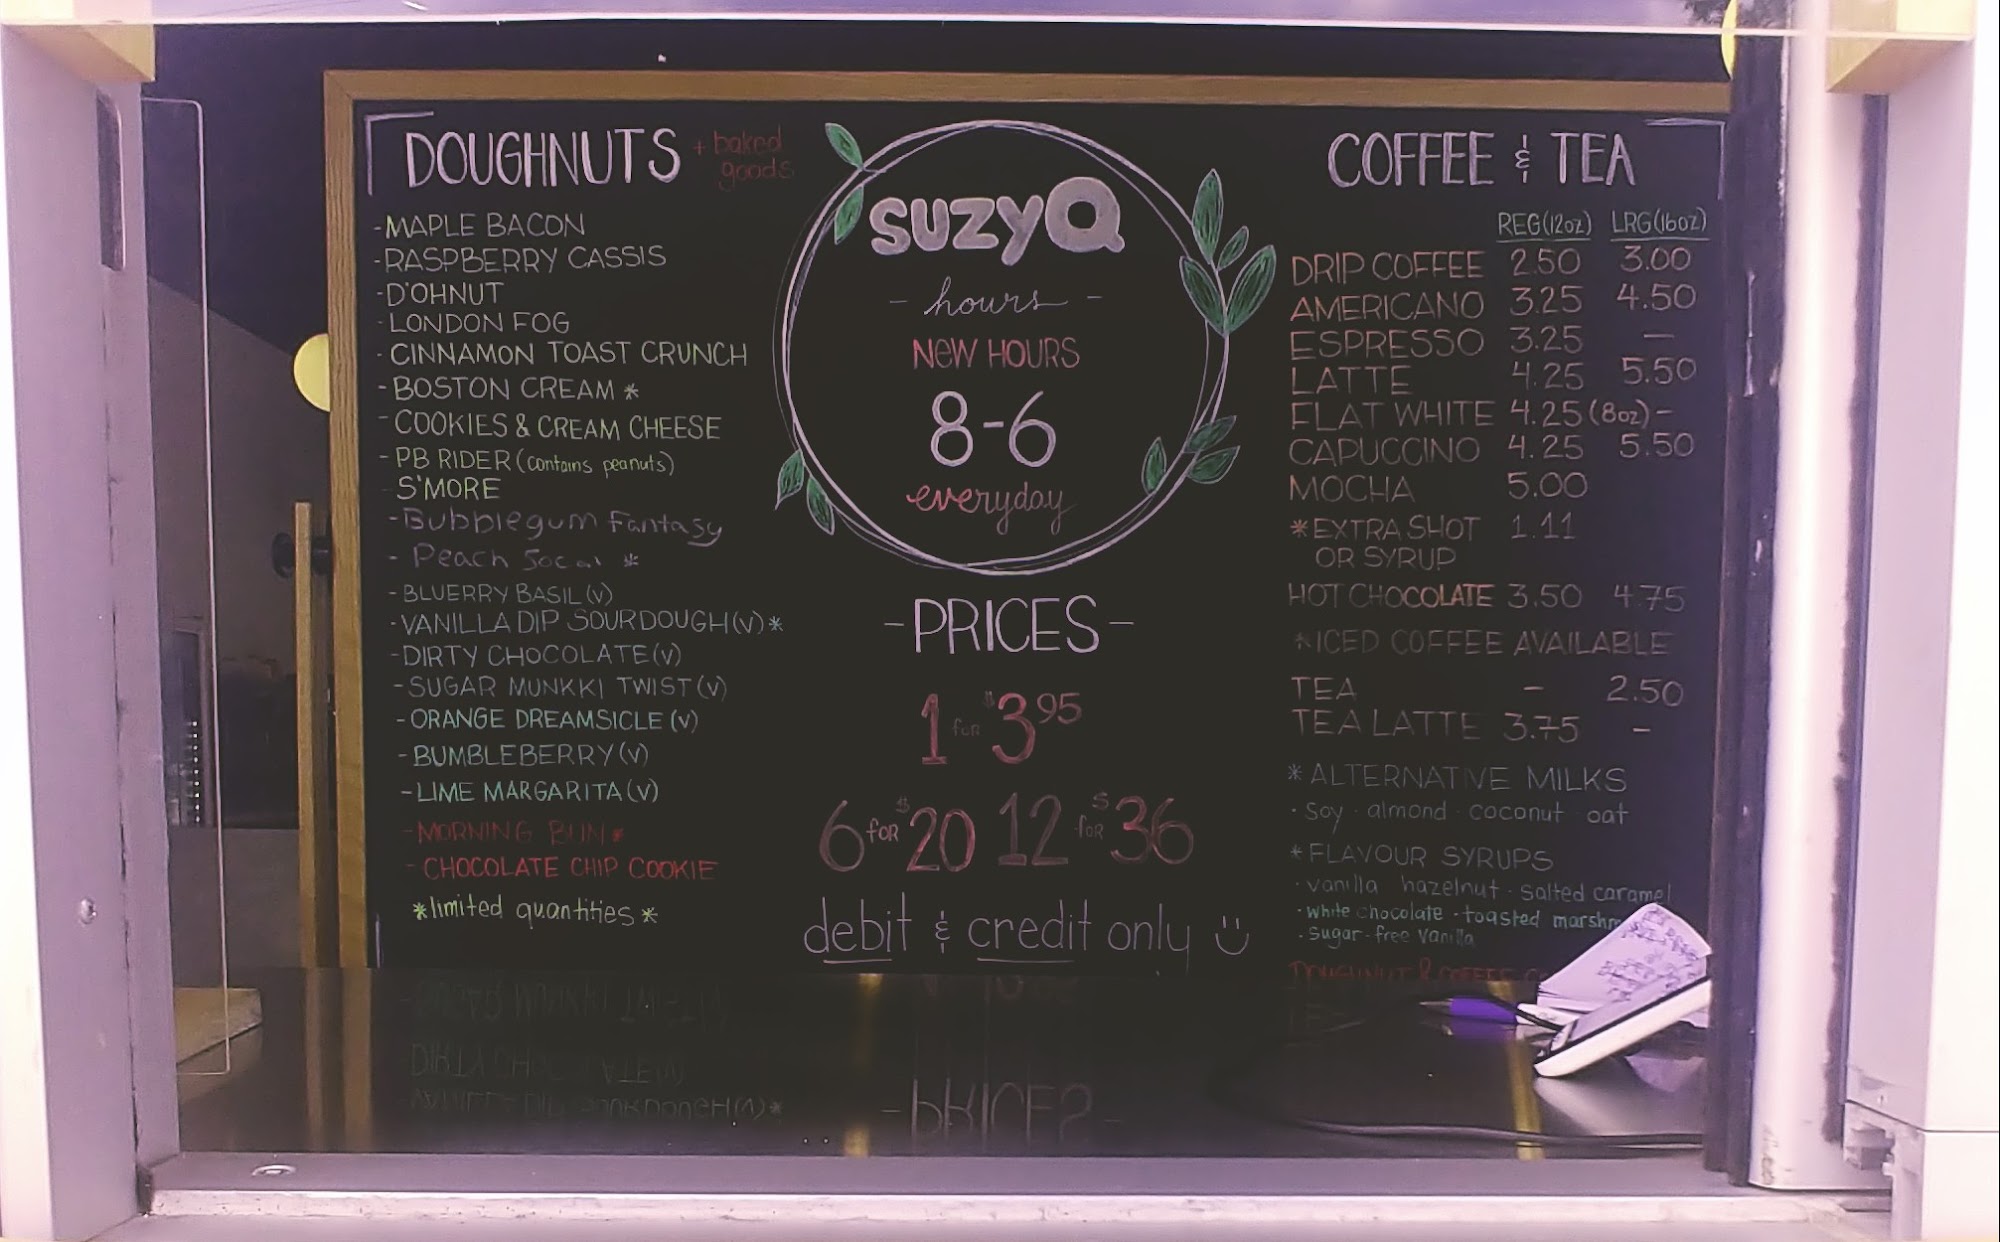 DOUGHNUTS + baked
goods
- MAPLE BACON
- RASPBERRY CASSIS
- D'OHNUT
- LONDON FOG
- CINNAMON TOAST CRUNCH
- BOSTON CREAM *
- COOKIES & CREAM CHEESE
- PB RIDER (contains peanuts)
S'MORE
- Bubblegum Fantasy
- Peach *
- BLUERRY BASIL (V)
- VANILLA DIP SOURDOUGH (V) *
- DIRTY CHOCOLATE (V)
- SUGAR MUNKKI TWIST (V)
- ORANGE DREAMSICLE (V)
- BUMBLEBERRY (V)
- LIME MARGARITA (V)
- MORNING BUN *
- CHOCOLATE CHIP COOKIE
*limited quantities*
suzyQ
- hours -
NEW HOURS
8-6
everyday
- PRICES -
1 for $3.95
6 for $20 12 for $36
debit & credit only
COFFEE & TEA
REG (12oz) LRG (16oz)
DRIP COFFEE 2.50 3.00
AMERICANO 3.25 4.50
ESPRESSO 3.25 —
LATTE 4.25 5.50
FLAT WHITE 4.25 (8oz) -
CAPUCCINO 4.25 5.50
MOCHA 5.00
*EXTRA SHOT 1.11
OR SYRUP
HOT CHOCOLATE 3.50 4.75
*ICED COFFEE AVAILABLE
TEA - 2.50
TEA LATTE 3.75 -
*ALTERNATIVE MILKS
· Soy · almond · coconut · oat
*FLAVOUR SYRUPS
· vanilla · hazelnut · salted caramel
· white chocolate · toasted marshm
· sugar-free vanilla
DOUGHNUT & COFFEE